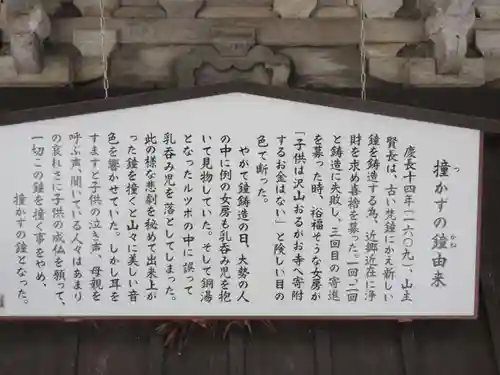 撞かずの鐘由来
つ
かね
慶長十四年(一六〇九)、山主
賢長は、古い梵鐘にかえ新しい
鐘を鋳造する為、近郷近在に浄
財を求め喜捨を募った。一回、二回
と鋳造に失敗し、三回目の寄進
を募った時、裕福そうな女房が
「子供は沢山おるがお寺へ寄附
するお金はない」と険しい目の
色で断った。
やがて鐘鋳造の日、大勢の人
の中に例の女房も乳呑み児を抱
いて見物していた。そして銅湯
となったルツボの中に誤って
乳呑み児を落としてしまった。
此の様な悲劇を秘めて出来上が
った鐘を撞くと山々に美しい音
色を響かせていた。しかし耳を
すますと子供の泣く声、母親を
呼ぶ声、聞いている人々はあまり
の哀れさに子供の成仏を願って、
一切この鐘を撞く事をやめ、
撞かずの鐘となった。